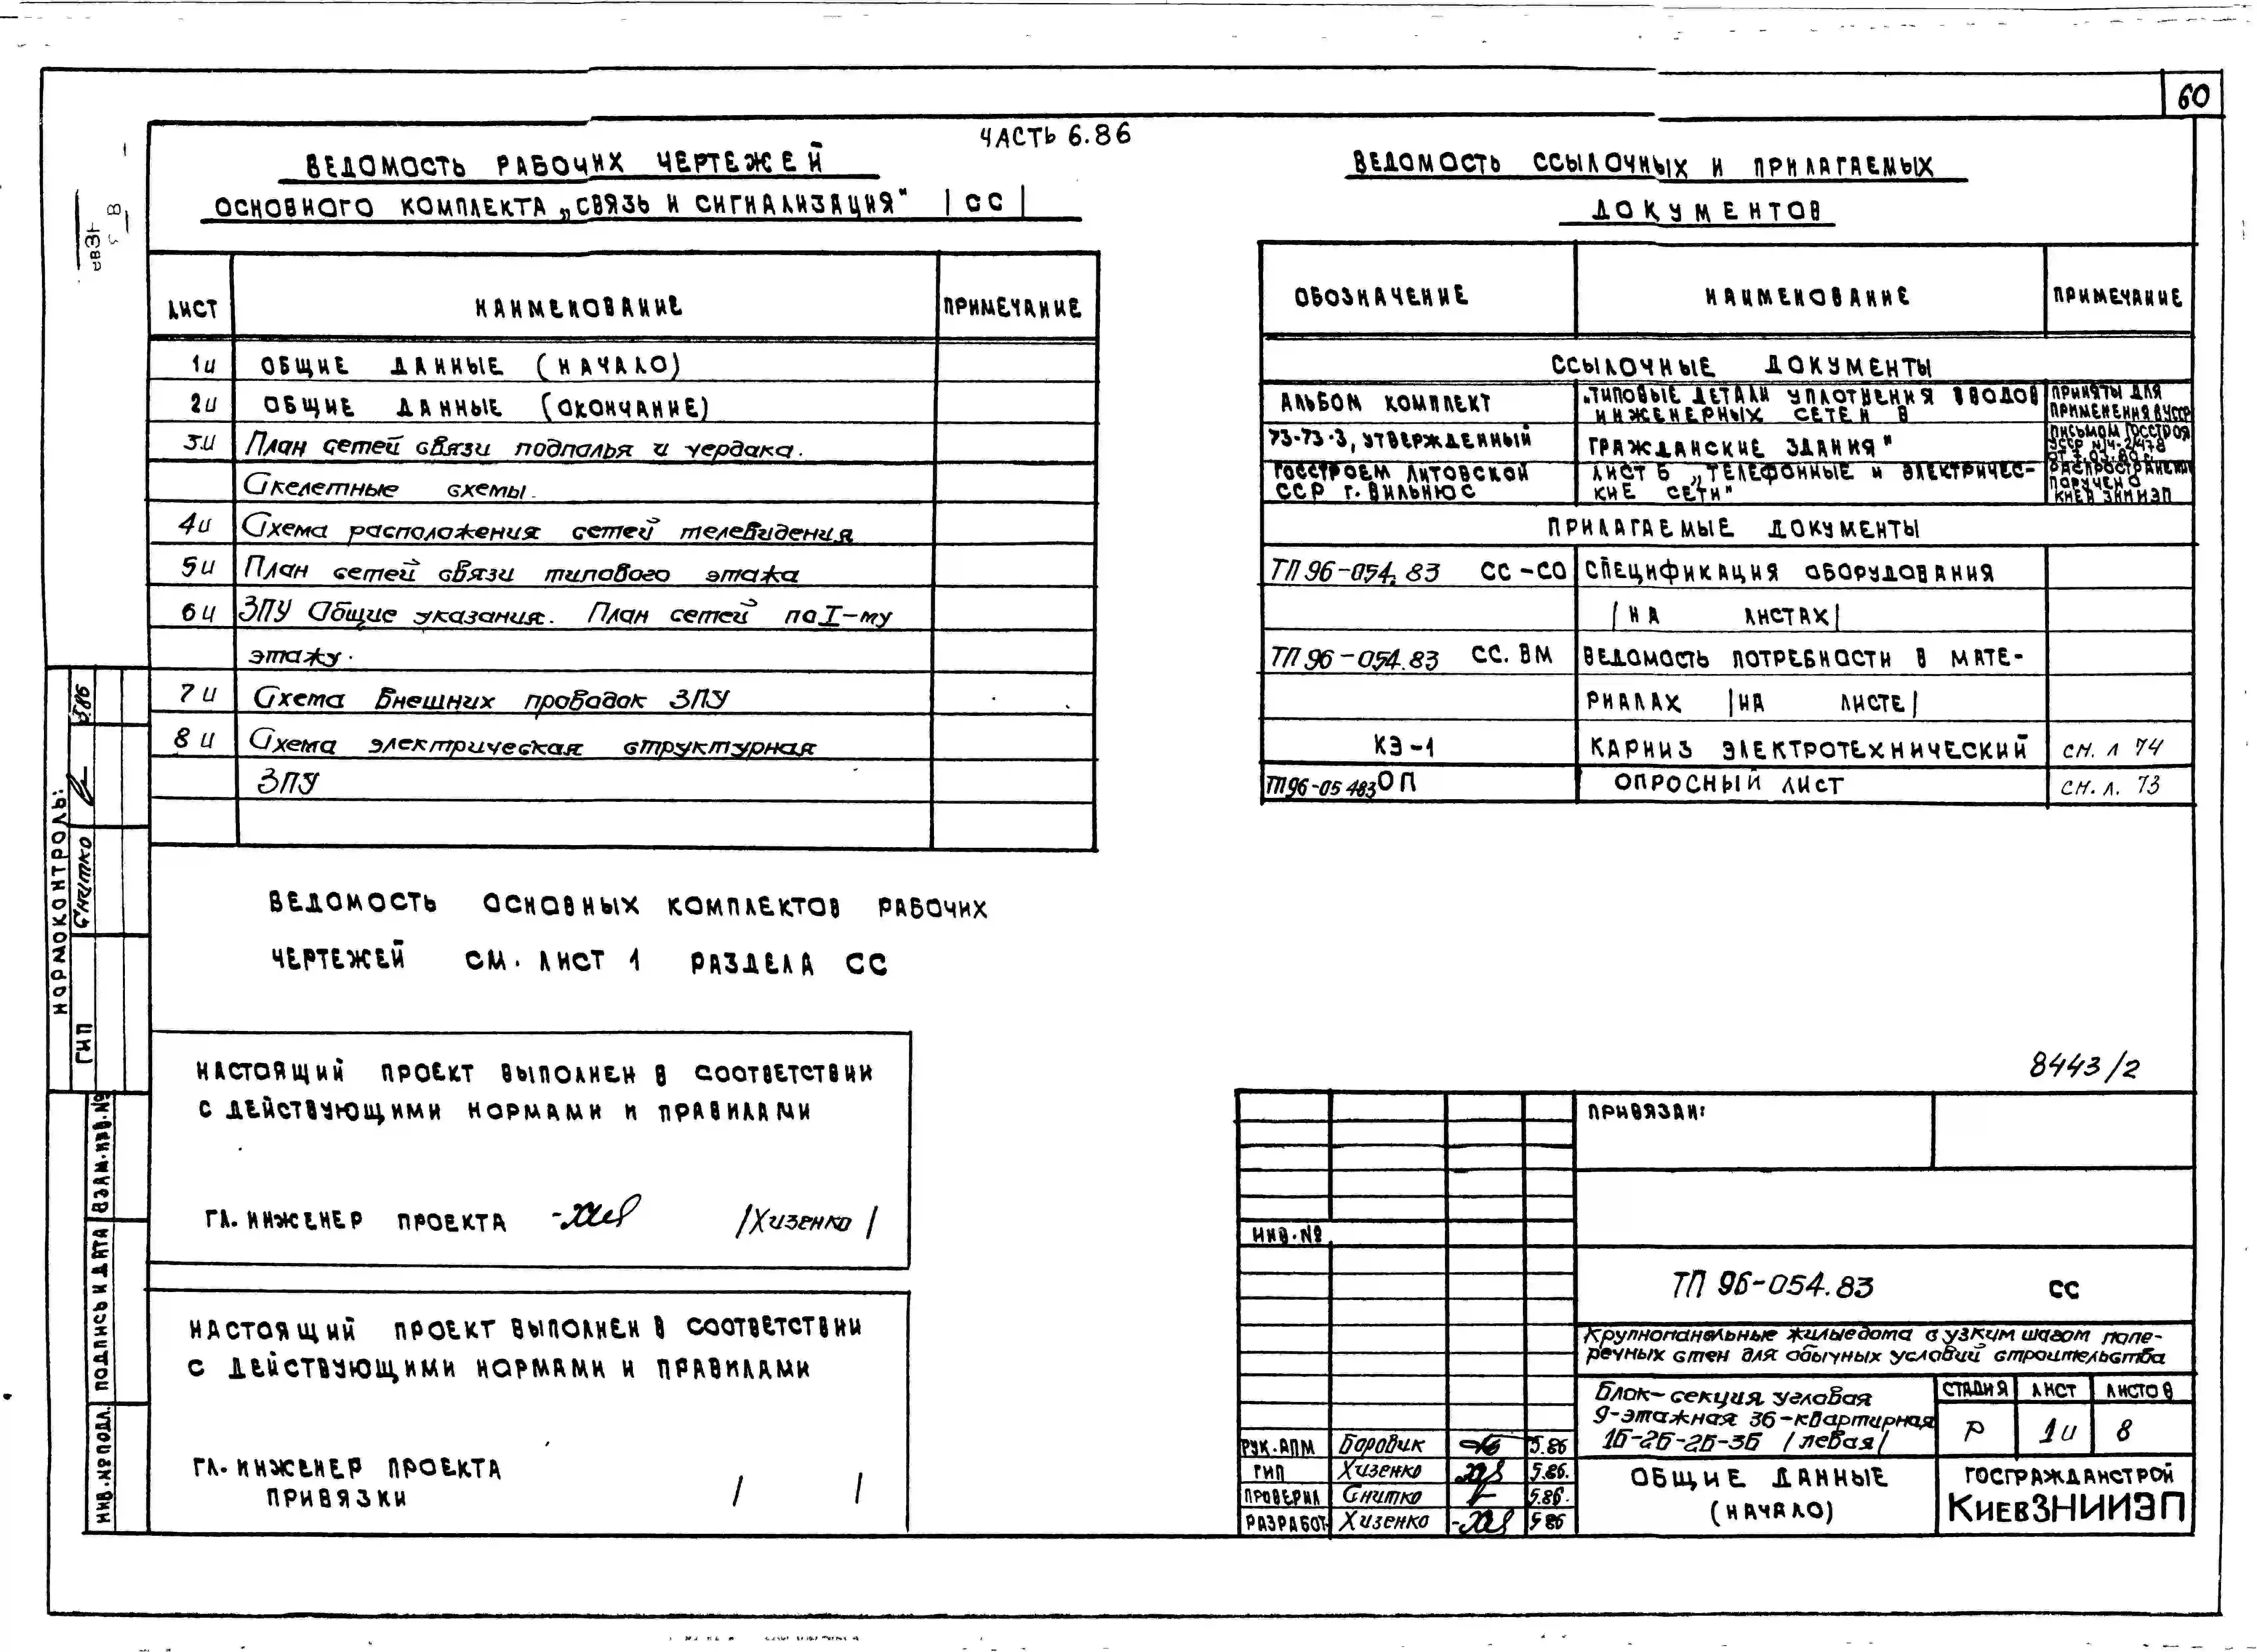 60
ЧАСТЬ 6.86
ВЕДОМОСТЬ РАБОЧИХ ЧЕРТЕЖЕЙ
ОСНОВНОГО КОМПЛЕКТА „СВЯЗЬ И СИГНАЛИЗАЦИЯ" |СС|
ЛИСТ НАИМЕНОВАНИЕ ПРИМЕЧАНИЕ
1и ОБЩИЕ ДАННЫЕ (НАЧАЛО)
2и ОБЩИЕ ДАННЫЕ (ОКОНЧАНИЕ)
3и План сетей связи подполья и чердака.
Скелетные схемы.
4и Схема расположения сетей телевидения
5и План сетей связи типового этажа
6и ЗПУ Общие указания. План сетей по I-му
этажу.
7и Схема внешних проводок ЗПУ
8и Схема электрическая структурная
ЗПУ
ВЕДОМОСТЬ ОСНОВНЫХ КОМПЛЕКТОВ РАБОЧИХ
ЧЕРТЕЖЕЙ СМ. ЛИСТ 1 РАЗДЕЛА СС
НАСТОЯЩИЙ ПРОЕКТ ВЫПОЛНЕН В СООТВЕТСТВИИ
С ДЕЙСТВУЮЩИМИ НОРМАМИ И ПРАВИЛАМИ
ГЛ. ИНЖЕНЕР ПРОЕКТА /Хизенко/
НАСТОЯЩИЙ ПРОЕКТ ВЫПОЛНЕН В СООТВЕТСТВИИ
С ДЕЙСТВУЮЩИМИ НОРМАМИ И ПРАВИЛАМИ
ГЛ. ИНЖЕНЕР ПРОЕКТА
ПРИВЯЗКИ / /
НОРМОКОНТРОЛЬ:
Снитко 5.86
ГИП
ВЗАМ. ИНВ. №
ПОДПИСЬ И ДАТА
ИНВ. № ПОДЛ.
ВЕДОМОСТЬ ССЫЛОЧНЫХ И ПРИЛАГАЕМЫХ
ДОКУМЕНТОВ
ОБОЗНАЧЕНИЕ НАИМЕНОВАНИЕ ПРИМЕЧАНИЕ
ССЫЛОЧНЫЕ ДОКУМЕНТЫ
АЛЬБОМ КОМПЛЕКТ
73-73-3, УТВЕРЖДЕННЫЙ
ГОССТРОЕМ ЛИТОВСКОЙ
ССР г. ВИЛЬНЮС
„ТИПОВЫЕ ДЕТАЛИ УПЛОТНЕНИЯ ВВОДОВ
ИНЖЕНЕРНЫХ СЕТЕЙ В
ГРАЖДАНСКИЕ ЗДАНИЯ"
ЛИСТ 5 „ТЕЛЕФОННЫЕ И ЭЛЕКТРИЧЕС-
КИЕ СЕТИ"
ПРИНЯТЫ ДЛЯ
ПРИМЕНЕНИЯ В УССР
ПИСЬМОМ ГОССТРОЯ
УССР
РАСПРОСТРАНЕНИЕ
ПОРУЧЕНО
КИЕВ ЗНИИЭП
ПРИЛАГАЕМЫЕ ДОКУМЕНТЫ
ТП 96-054.83 СС-СО СПЕЦИФИКАЦИЯ ОБОРУДОВАНИЯ
|НА ЛИСТАХ|
ТП 96-054.83 СС. ВМ ВЕДОМОСТЬ ПОТРЕБНОСТИ В МАТЕ-
РИАЛАХ |НА ЛИСТЕ|
КЭ-1 КАРНИЗ ЭЛЕКТРОТЕХНИЧЕСКИЙ см. л 74
ТП96-05 483 ОП ОПРОСНЫЙ ЛИСТ см. л. 73
8443/2
ПРИВЯЗАН:
ИНВ. №
ТП 96-054.83 СС
Крупнопанельные жилые дома с узким шагом попе-
речных стен для обычных условий строительства
Блок-секция угловая
9-этажная 36-квартирная
1Б-2Б-2Б-3Б /левая/
СТАДИЯ ЛИСТ ЛИСТОВ
Р 1и 8
РУК. АПМ Боровик 5.86
ГИП Хизенко 5.86.
ПРОВЕРИЛ Снитко 5.86.
РАЗРАБОТ. Хизенко 5 86
ОБЩИЕ ДАННЫЕ
(НАЧАЛО)
ГОСГРАЖДАНСТРОЙ
КИЕВЗНИИЭП